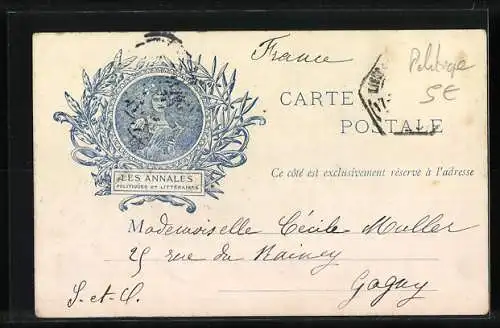 France
Politique
5€
CARTE
POSTALE
LES ANNALES
POLITIQUES ET LITTÉRAIRES
Ce côté est exclusivement réservé à l'adresse
Mademoiselle Cécile Muller
25 rue du Rainey
Gagny
S. et O.